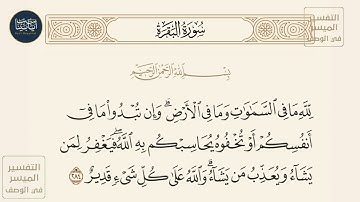 سُورَةُ البَقَرَةِ
التفسير
الميسر
في الوصف
بِسْمِ اللَّهِ الرَّحْمَٰنِ الرَّحِيمِ
لِّلَّهِ مَا فِي السَّمَاوَاتِ وَمَا فِي الْأَرْضِ ۗ وَإِن تُبْدُوا مَا فِي
أَنفُسِكُمْ أَوْ تُخْفُوهُ يُحَاسِبْكُم بِهِ اللَّهُ ۖ فَيَغْفِرُ لِمَن
يَشَاءُ وَيُعَذِّبُ مَن يَشَاءُ ۗ وَاللَّهُ عَلَىٰ كُلِّ شَيْءٍ قَدِيرٌ ٢٨٤
التفسير
الميسر
في الوصف